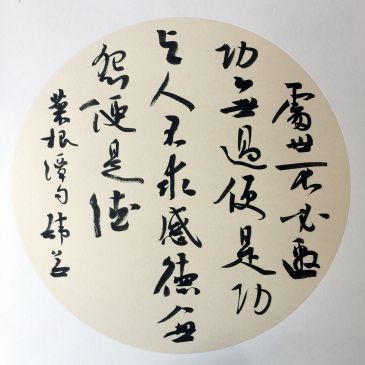 處世不必邀
功無過便是功
与人不求感德無
怨便是德
菜根譚句